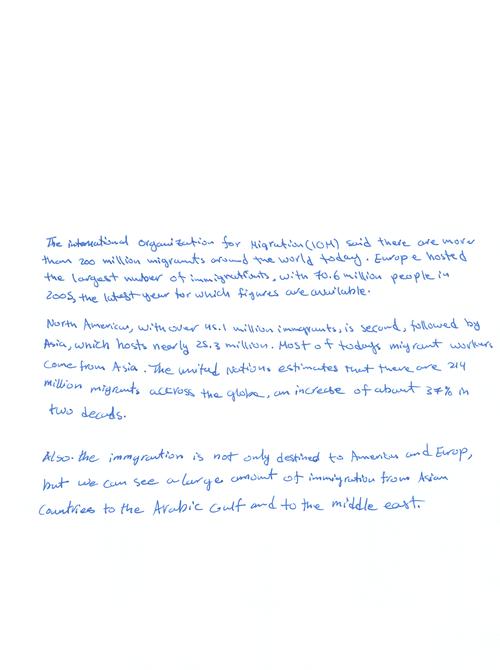 The international Organization for Migration (IOM) said there are more
than 200 million migrants around the world today. Europe hosted
the largest number of immigrants, with 70.6 million people in
2005, the latest year for which figures are available.
North Americas, with over 45.1 million immigrants, is second, followed by
Asia, which hosts nearly 25.3 million. Most of todays migrant workers
come from Asia. The united Nations estimates that there are 214
million migrants accross the globe, an increase of about 37% in
two decads.
Also. the immgraution is not only destined to Americas and Europ,
but we can see a large amount of immigration from Asian
Countries to the Arabic Gulf and to the middle east.